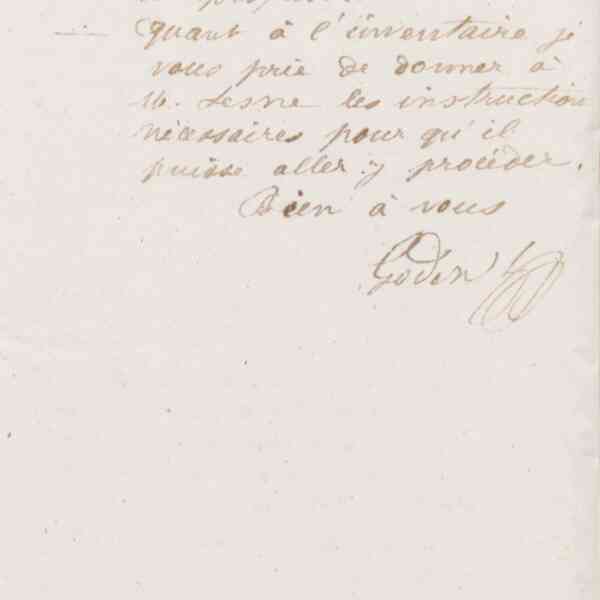 quant à l'inventaire je
vous prie de donner à
M. Lesne les instructions
nécessaires pour qu'il
puisse aller y procéder.
Bien à vous
Godin